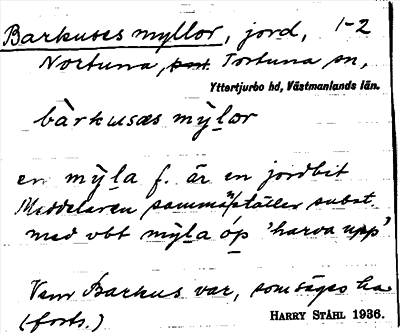 Barkuses myllor, jord, 1-2
Nortuna, Tortuna sn,
Yttertjurbo hd, Västmanlands län.
bàrkusæs mỳlor
en mỳla f. är en jordbit
Meddelaren sammanställer subst.
med vbt mỳla óp 'harva upp'
Vem Barkus var, som säges ha
(forts.) HARRY STÅHL 1936.